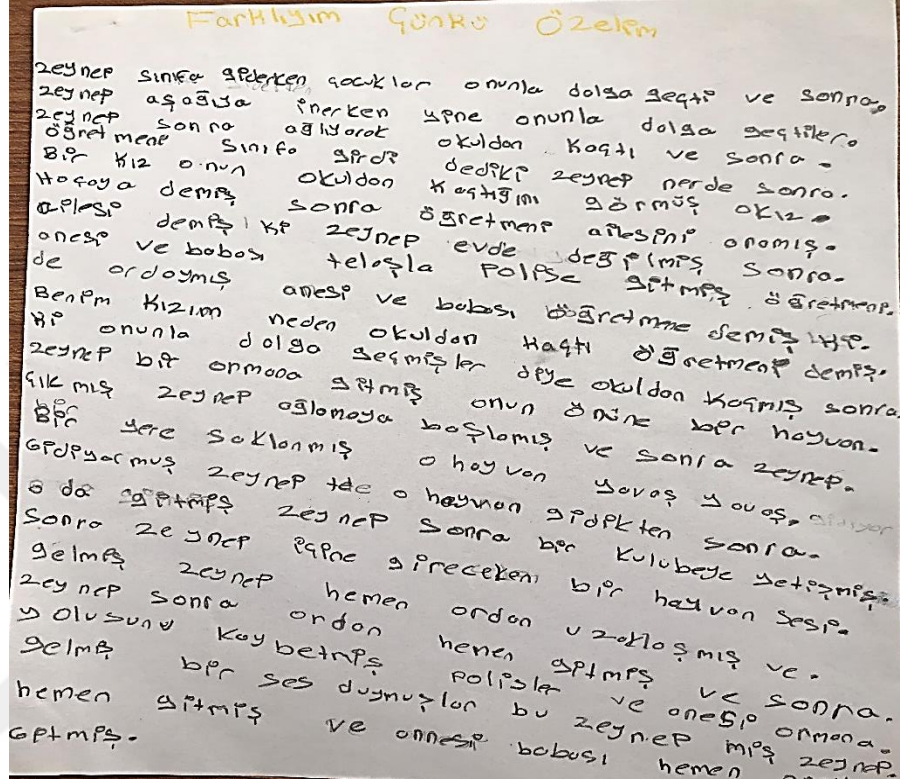 Farklıyım Günkü Özelim
Zeynep sınıfa giderken çocuklar onunla dalga geçti ve sonra.
Zeynep aşağıya inerken yine onunla dalga geçtiler.
Zeynep sonra ağlıyarak okuldan kaçtı ve sonra.
öğretmeni sınıfa girdi dediki zeynep nerde sonra.
Bir kız onun okuldan kaçtığını görmüş okız.
Hocaya demiş sonra öğretmeni ailesini aramış.
ailesi demiş ki zeynep evde değilmiş sonra.
anesi ve babası telaşla polise gitmiş öğretmeni.
de ordaymış anesi ve babası öğretmne demiş ki.
Benim kızım neden okuldan kaçtı öğretmeni demiş.
ki onunla dalga geçmişler diye okuldan kaçmış sonra.
zeynep bir ormana gitmiş onun önüne bir hayvan.
çıkmış zeynep ağlamaya başlamış ve sonra zeynep.
Bir yere saklanmış o hayvan yavaş yavaş.
Gidiyormuş zeynep te o hayvan gidikten sonra.
o da gitmiş zeynep sonra bir kulubeye yetişmiş.
Sonra zeynep içine girecekeni bir hayvan sesi.
gelmiş zeynep hemen ordan uzaklaşmış ve.
zeynep sonra ordan hemen gitmiş ve sonra.
yolusunu kaybetmiş polisler ve anesi ormana.
gelmiş bir ses duymuşlar bu zeynep miş zeynep.
hemen gitmiş ve annesi babası hemen
Gitmiş.